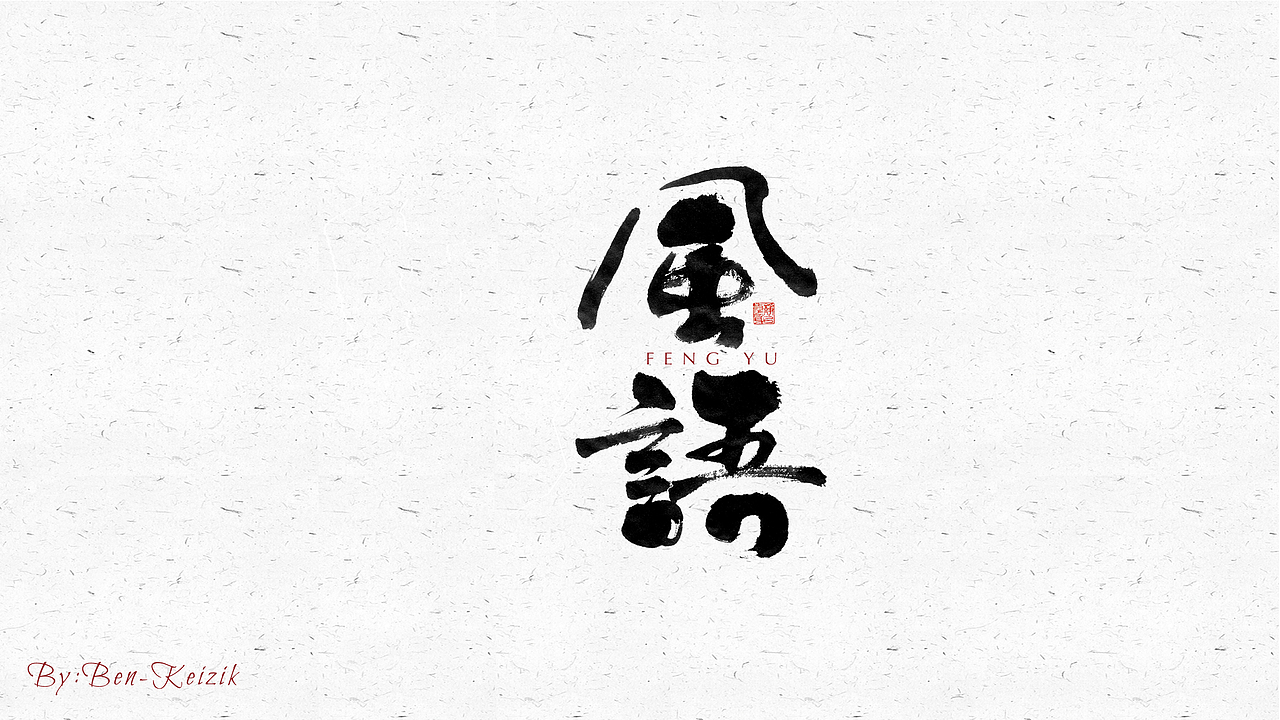 風
FENG YU
語
By:Ben-Keizik